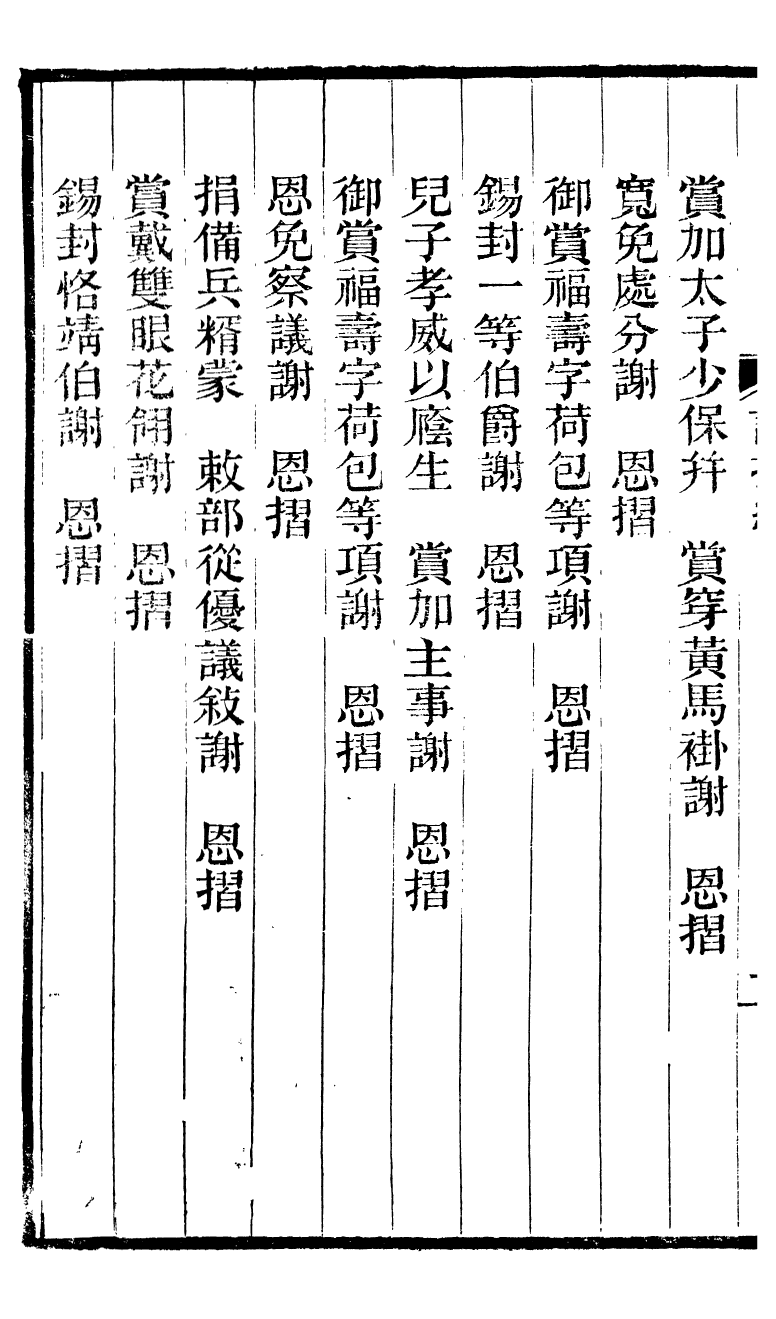 賞加太子少保幷　賞穿黃馬褂謝　恩摺
寬免處分謝　恩摺
御賞福壽字荷包等項謝　恩摺
錫封一等伯爵謝　恩摺
兒子孝威以廕生　賞加主事謝　恩摺
御賞福壽字荷包等項謝　恩摺
恩免察議謝　恩摺
捐備兵糈蒙　敕部從優議敍謝　恩摺
賞戴雙眼花翎謝　恩摺
錫封恪靖伯謝　恩摺